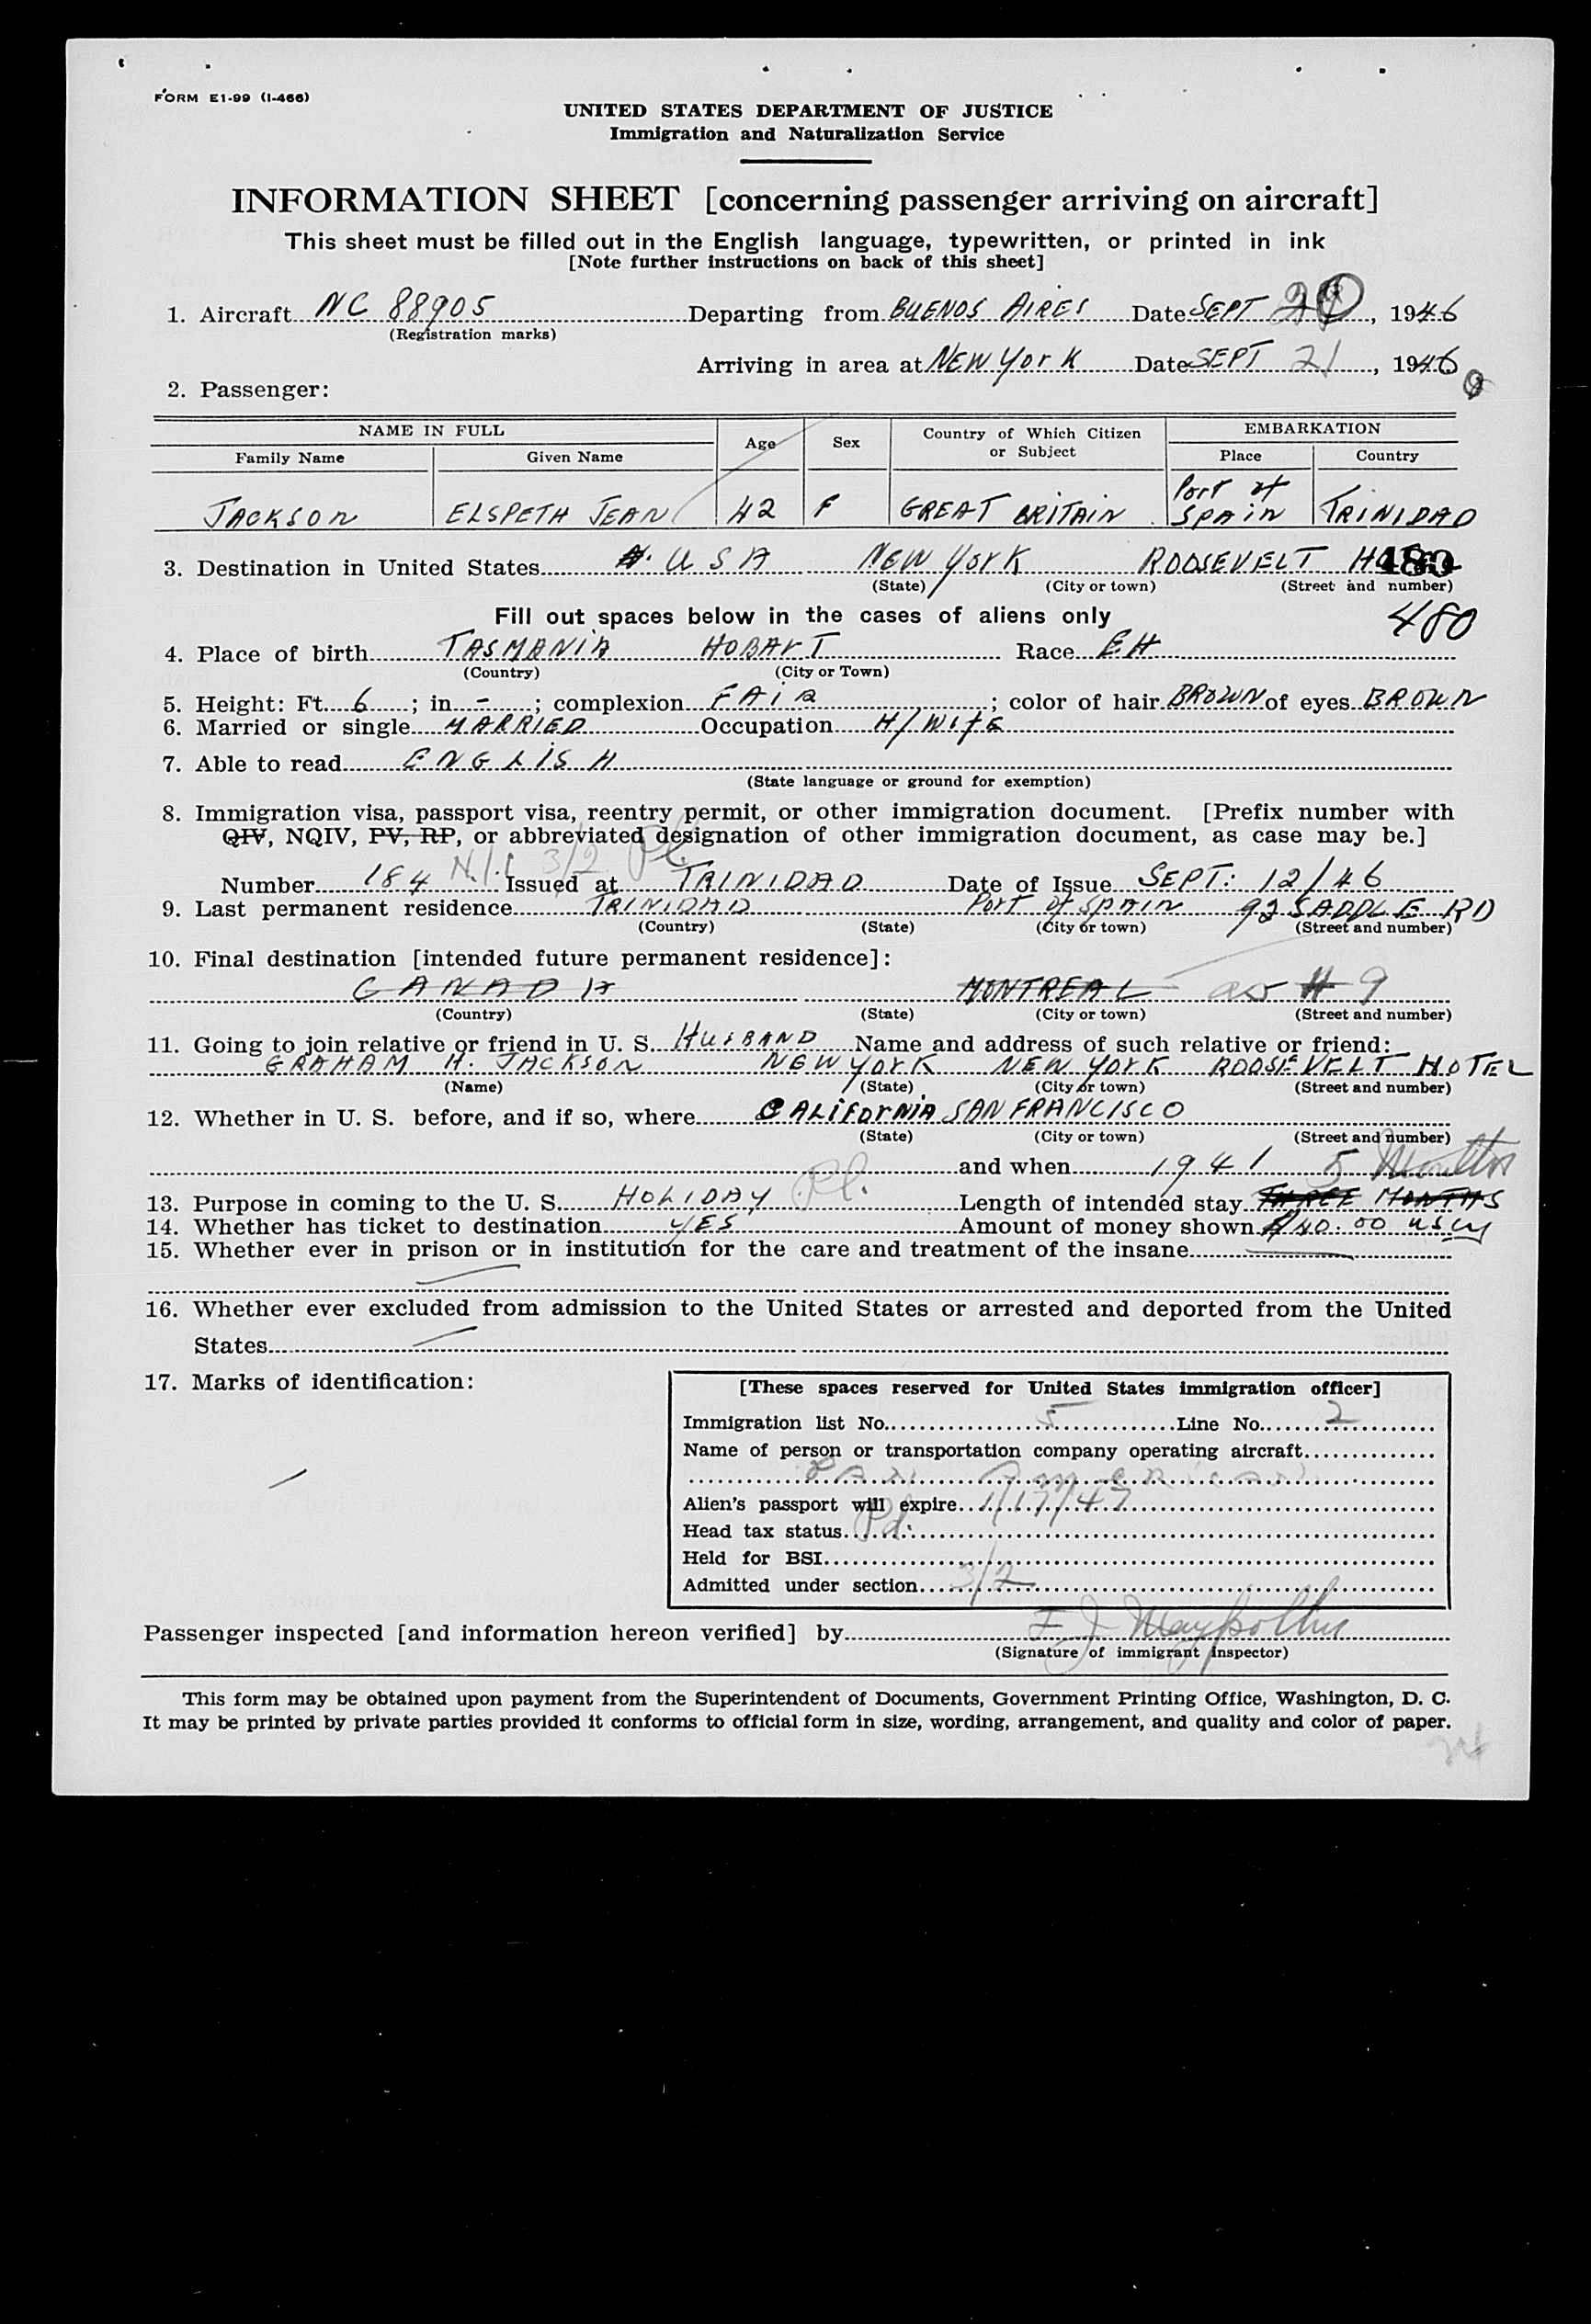 FORM E1-99 (I-466)
UNITED STATES DEPARTMENT OF JUSTICE
Immigration and Naturalization Service
INFORMATION SHEET [concerning passenger arriving on aircraft]
This sheet must be filled out in the English language, typewritten, or printed in ink
[Note further instructions on back of this sheet]
1. Aircraft NC 88905 Departing from BUENOS AIRES Date SEPT , 1946
(Registration marks)
Arriving in area at NEW YorK Date SEPT 21, 1946
2. Passenger:
NAME IN FULL Age Sex Country of Which Citizen or Subject EMBARKATION
Family Name Given Name Place Country
JACKSON ELSPETH JEAN 42 F GREAT BRITAIN Port of SPAIN TRINIDAD
3. Destination in United States U S A NEW YorK ROOSEVELT 480
(State) (City or town) (Street and number)
Fill out spaces below in the cases of aliens only 480
4. Place of birth TASMANIA HOBART Race EH
(Country) (City or Town)
5. Height: Ft. 6; in - ; complexion FAIR; color of hair BROWN of eyes BROWN
6. Married or single MARRIED Occupation H/Wife
7. Able to read ENGLISH
(State language or ground for exemption)
8. Immigration visa, passport visa, reentry permit, or other immigration document. [Prefix number with
QIV, NQIV, PV, RP, or abbreviated designation of other immigration document, as case may be.]
3/2 Pl.
Number 184 Issued at TRINIDAD Date of Issue SEPT: 12/46
9. Last permanent residence TRINIDAD Port of SPAIN 92 SADDLE RD
(Country) (State) (City or town) (Street and number)
10. Final destination [intended future permanent residence]:
CANADA MONTREAL as # 9
(Country) (State) (City or town) (Street and number)
11. Going to join relative or friend in U. S. HUSBAND Name and address of such relative or friend:
GRAHAM H. JACKSON NEW YORK NEW YORK ROOSEVELT HOTEL
(Name) (State) (City or town) (Street and number)
12. Whether in U. S. before, and if so, where CALIFORNIA SAN FRANCISCO
(State) (City or town) (Street and number)
and when 1941 5 Months
13. Purpose in coming to the U. S. HOLIDAY Pl. Length of intended stay THREE MONTHS
14. Whether has ticket to destination YES Amount of money shown $40.00 US cy
15. Whether ever in prison or in institution for the care and treatment of the insane
16. Whether ever excluded from admission to the United States or arrested and deported from the United
States
17. Marks of identification:
[These spaces reserved for United States immigration officer]
Immigration list No. 5 Line No. 2
Name of person or transportation company operating aircraft
Pan American
Alien's passport will expire 1/17/47
Head tax status Pd.
Held for BSI
Admitted under section 3/2
Passenger inspected [and information hereon verified] by
(Signature of immigrant inspector)
This form may be obtained upon payment from the Superintendent of Documents, Government Printing Office, Washington, D. C.
It may be printed by private parties provided it conforms to official form in size, wording, arrangement, and quality and color of paper.